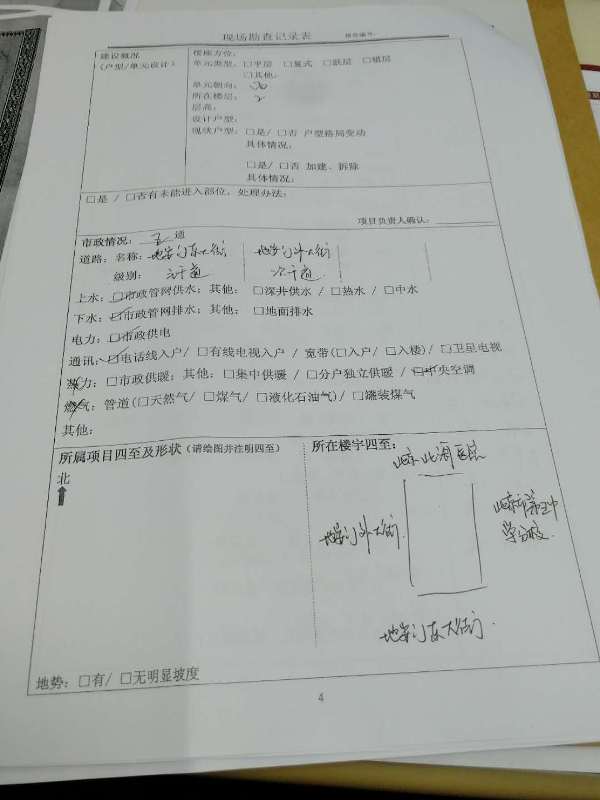 现场勘查记录表
建设概况
（户型/单元设计）
楼座方位:
单元类型: □平层 □复式 □跃层 □错层
□其他:
单元朝向:
所在楼层: 2
层高:
设计户型:
现状户型: □是/ □否 户型格局变动
具体情况:
□是/ □否 加建、拆除
具体情况:
□是 / □否有未能进入部位，处理办法:
项目负责人确认:
市政情况: 五 通
道路: 名称: 地安门东大街 地安门外大街
级别: 主干道 次干道
上水: □市政管网供水; 其他: □深井供水 / □热水 / □中水
下水: □市政管网排水; 其他: □地面排水
电力: □市政供电
通讯: □电话线入户/ □有线电视入户 / 宽带(□入户/ □入楼)/ □卫星电视
热力: □市政供暖; 其他: □集中供暖 / □分户独立供暖 / □中央空调
燃气: 管道(□天然气/ □煤气/ □液化石油气)/ □罐装煤气
其他:
所属项目四至及形状（请绘图并注明四至）
北
所在楼宇四至:
地安门外大街
北京市第五中
学分校
地安门东大街
地势: □有/ □无明显坡度
4